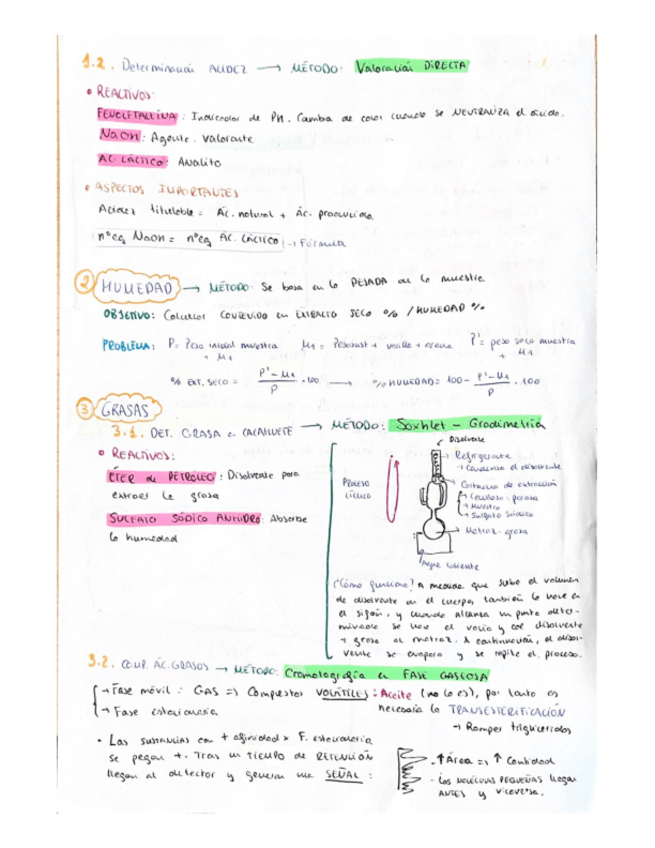 1.2. Determinación ACIDEZ → MÉTODO: Valoración DIRECTA
• REACTIVOS:
FENOLFTALEÍNA: Indicador de PH. Cambia de color cuando se NEUTRALIZA el ácido.
NaOH: Agente valorante
AC. LÁCTICO: Analito
• ASPECTOS IMPORTANTES
Acidez titulable = Ác. natural + Ác. producida
nºeq NaOH = nºeq ÁC. LÁCTICO → Fórmula
2 HUMEDAD → MÉTODO: Se basa en la PESADA de la muestra
OBJETIVO: Calcular CONTENIDO en EXTRACTO SECO % / HUMEDAD %
PROBLEMA: P = Peso inicial muestra + M1 M1 = Pesasust + varilla + arena P' = peso seco muestra + M1
% EXT. SECO = P' - M1 / P · 100 → % HUMEDAD = 100 - P' - M1 / P · 100
3 GRASAS
3.1. DET. GRASA en CACAHUETE → MÉTODO: Soxhlet - Gradimetría
• REACTIVOS:
ÉTER de PETRÓLEO: Disolvente para
extraer la grasa
SULFATO SÓDICO ANHIDRO: Absorbe
la humedad
Proceso
cíclico
Disolvente
Refrigerante
→ Condensa el disolvente
Cartucho de extracción
→ Celulosa porosa
→ Muestra
→ Sulfato sódico
→ Matraz - grasa
Agua caliente
¿Cómo funciona? A medida que sube el volumen
de disolvente en el cuerpo, también lo hace en
el sifón, y cuando alcanza un punto deter-
minado se hace el vacío y cae disolvente
+ grasa al matraz. A continuación, el disol-
vente se evapora y se repite el proceso.
3.2. COMP. ÁC. GRASOS → MÉTODO: Cromatografía en FASE GASEOSA
→ Fase móvil: GAS => Compuestos VOLÁTILES: Aceite (no lo es), por tanto es
→ Fase estacionaria necesaria la TRANSESTERIFICACIÓN
→ Romper triglicéridos
• Las sustancias con + afinidad x F. estacionaria
se pegan +. Tras un TIEMPO de RETENCIÓN
llegan al detector y generan una SEÑAL:
- ↑ Área => ↑ Cantidad
- Las MOLÉCULAS PEQUEÑAS llegan
ANTES y viceversa.